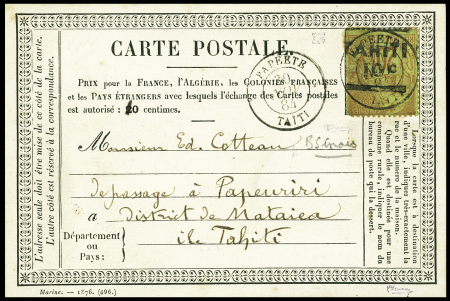 CARTE POSTALE.
PRIX pour la FRANCE, l'ALGÉRIE, les COLONIES FRANÇAISES
et les PAYS ÉTRANGERS avec lesquels l'échange des Cartes postales
est autorisé : 10 centimes.
PAPEETE
84
TAITI
PAPEETE
TAHITI
10 c
Monsieur Ed. Cotteau
de passage à Papeuriri
a District de Mataiea
Département
ou
Pays :
ile Tahiti
L'adresse seule doit être mise de ce côté de la carte.
L'autre côté est réservé à la correspondance.
Lorsque la carte est à destination
d'une ville, indiquer très-exactement la
rue et le numéro de la maison.
Quand elle est destinée pour une
commune rurale, indiquer le nom du
bureau de poste qui la dessert.
Marine. — 1876. (696.)